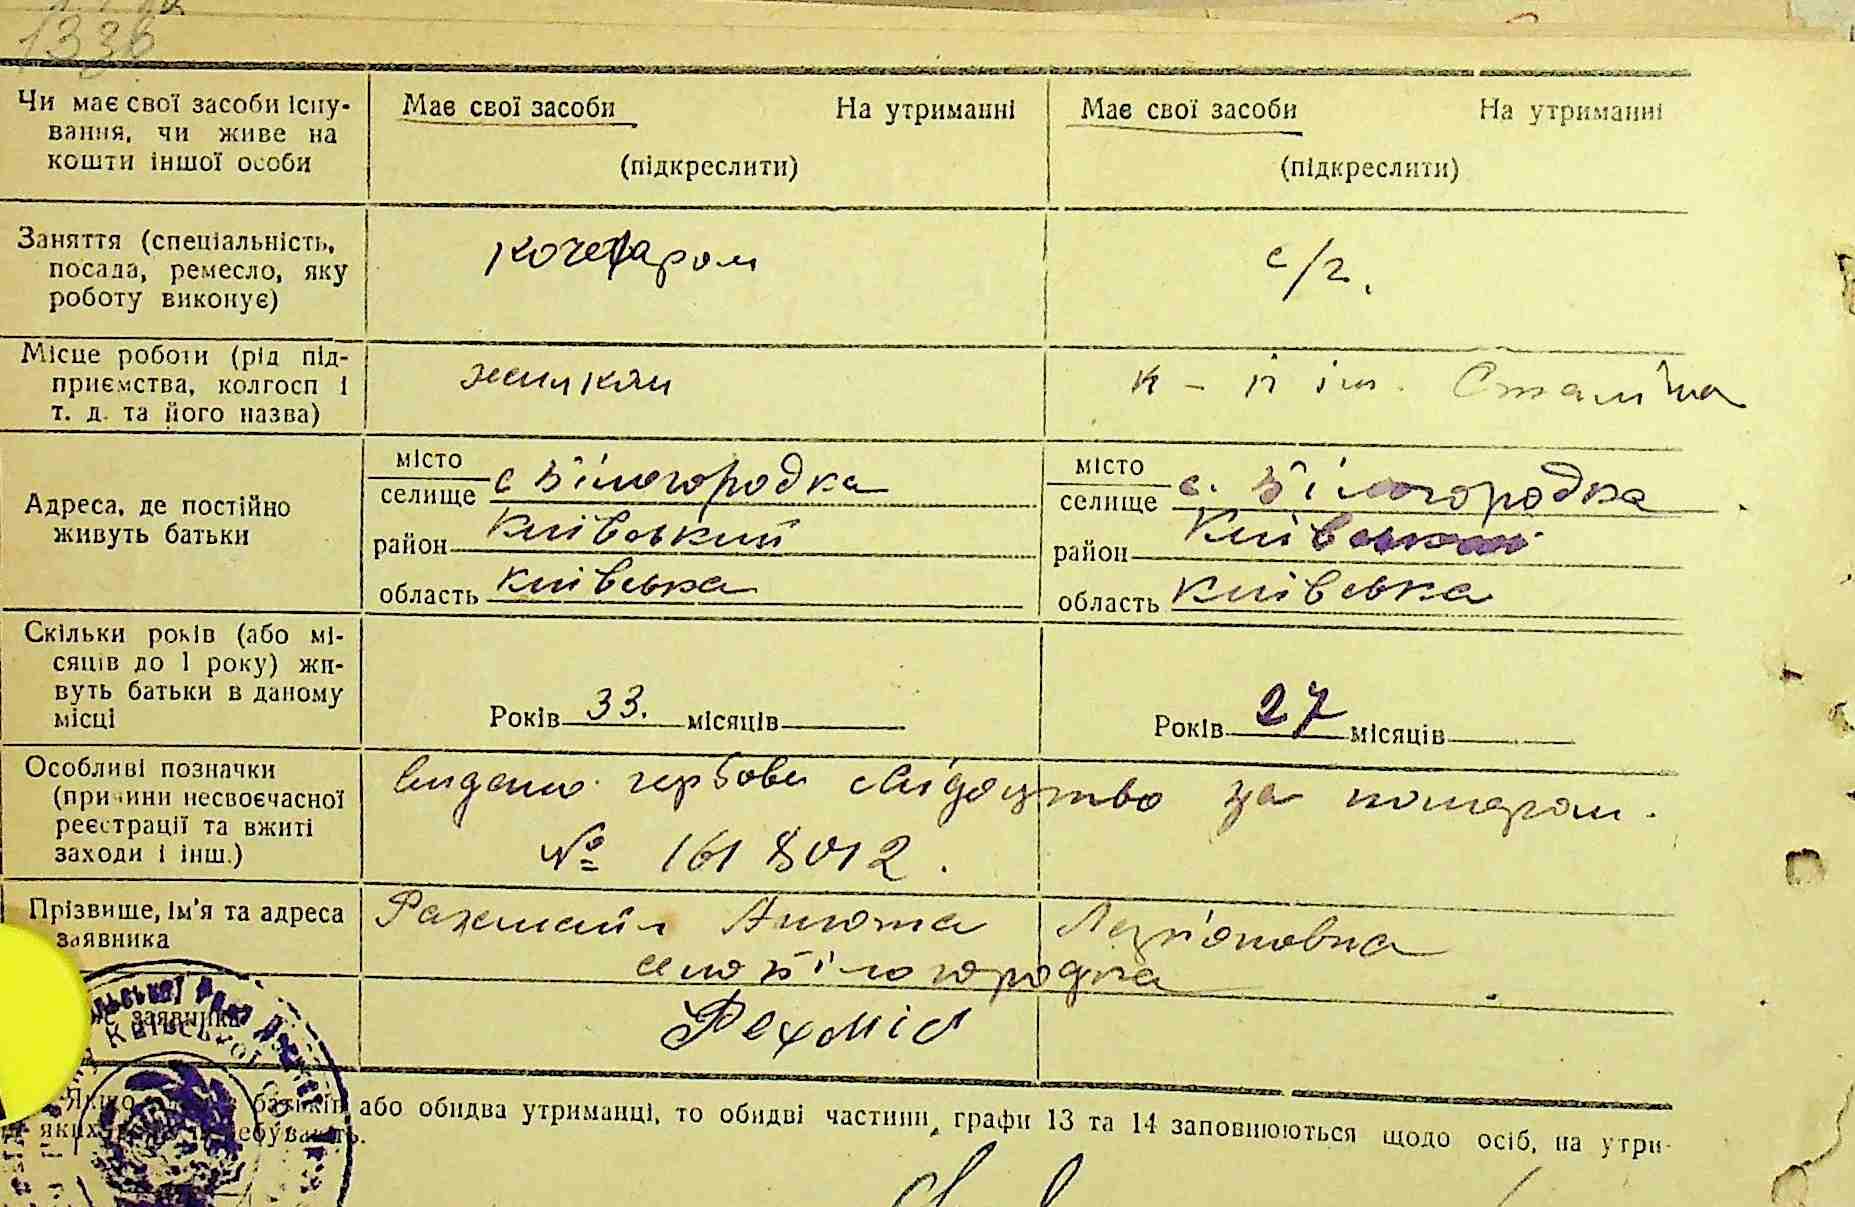 1336
Чи має свої засоби існу-
вання, чи живе на
кошти іншої особи
Має свої засоби На утриманні
(підкреслити)
Має свої засоби На утриманні
(підкреслити)
Заняття (спеціальність,
посада, ремесло, яку
роботу виконує)
кочегаром
с/г.
Місце роботи (рід під-
приємства, колгосп і
т. д. та його назва)
к-п ім. Сталіна
Адреса, де постійно
живуть батьки
місто
селище с Білогородка
район Київський
область Київська
місто
селище с. Білогородка
район Київський
область Київська
Скільки років (або мі-
сяців до 1 року) жи-
вуть батьки в даному
місці
Років 33. місяців
Років 27 місяців
Особливі позначки
(причини несвоєчасної
реєстрації та вжиті
заходи і інш.)
видано гербове свідоцтво за номером.
№ 1618012.
Прізвище, ім'я та адреса
заявника
Рахмаїл Анюта
село Білогородка
заявника
або обидва утриманці, то обидві частини, графи 13 та 14 заповнюються щодо осіб, на утри-
яких